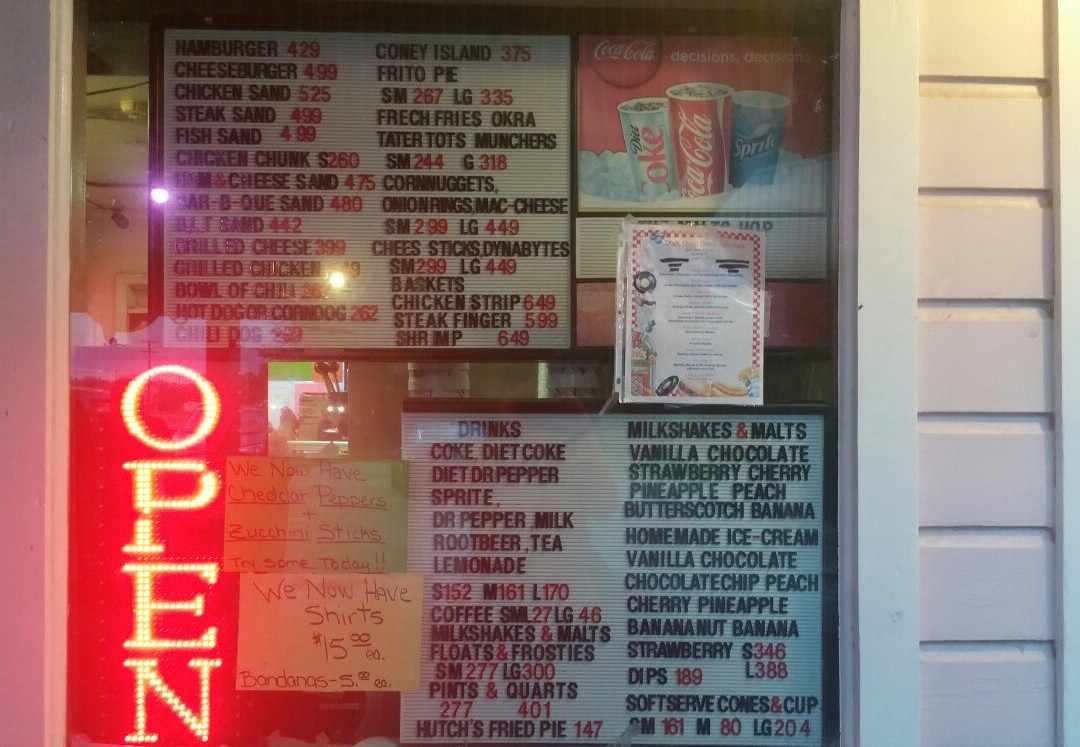 HAMBURGER 429
CHEESEBURGER 499
CHICKEN SAND 525
STEAK SAND 499
FISH SAND 4 99
CHICKEN CHUNK S260
HAM & CHEESE SAND 475
BAR-B-QUE SAND 480
B.L.T SAND 442
GRILLED CHEESE 399
GRILLED CHICKEN
BOWL OF CHILI
HOT DOG OR CORNDOG 262
CHILI DOG 269
CONEY ISLAND 375
FRITO PIE
SM 267 LG 335
FRECH FRIES OKRA
TATER TOTS MUNCHERS
SM 244 G 318
CORNNUGGETS,
ONIONRINGS, MAC-CHEESE
SM 299 LG 449
CHEES STICKS, DYNABYTES
SM 299 LG 449
BASKETS
CHICKEN STRIP 649
STEAK FINGER 599
SHR IMP 649
Coca-Cola decisions, decisions
Diet Coke
Coca-Cola
Sprite
OPEN
We Now Have
Cheddar Peppers
+
Zucchini Sticks
Try some Today!!
We Now Have
Shirts
$15.00 ea.
Bandanas-5.00 ea.
DRINKS
COKE, DIET COKE
DIET DR PEPPER
SPRITE,
DR PEPPER, MILK
ROOTBEER, TEA
LEMONADE
S152 M161 L170
COFFEE SML 27 LG 46
MILKSHAKES & MALTS
FLOATS & FROSTIES
SM 277 LG 300
PINTS & QUARTS
277 401
HUTCH'S FRIED PIE 147
MILKSHAKES & MALTS
VANILLA CHOCOLATE
STRAWBERRY CHERRY
PINEAPPLE PEACH
BUTTERSCOTCH BANANA
HOMEMADE ICE-CREAM
VANILLA CHOCOLATE
CHOCOLATECHIP PEACH
CHERRY PINEAPPLE
BANANANUT BANANA
STRAWBERRY S346
L388
DIPS 189
SOFTSERVE CONES & CUP
SM 161 M 80 LG 204